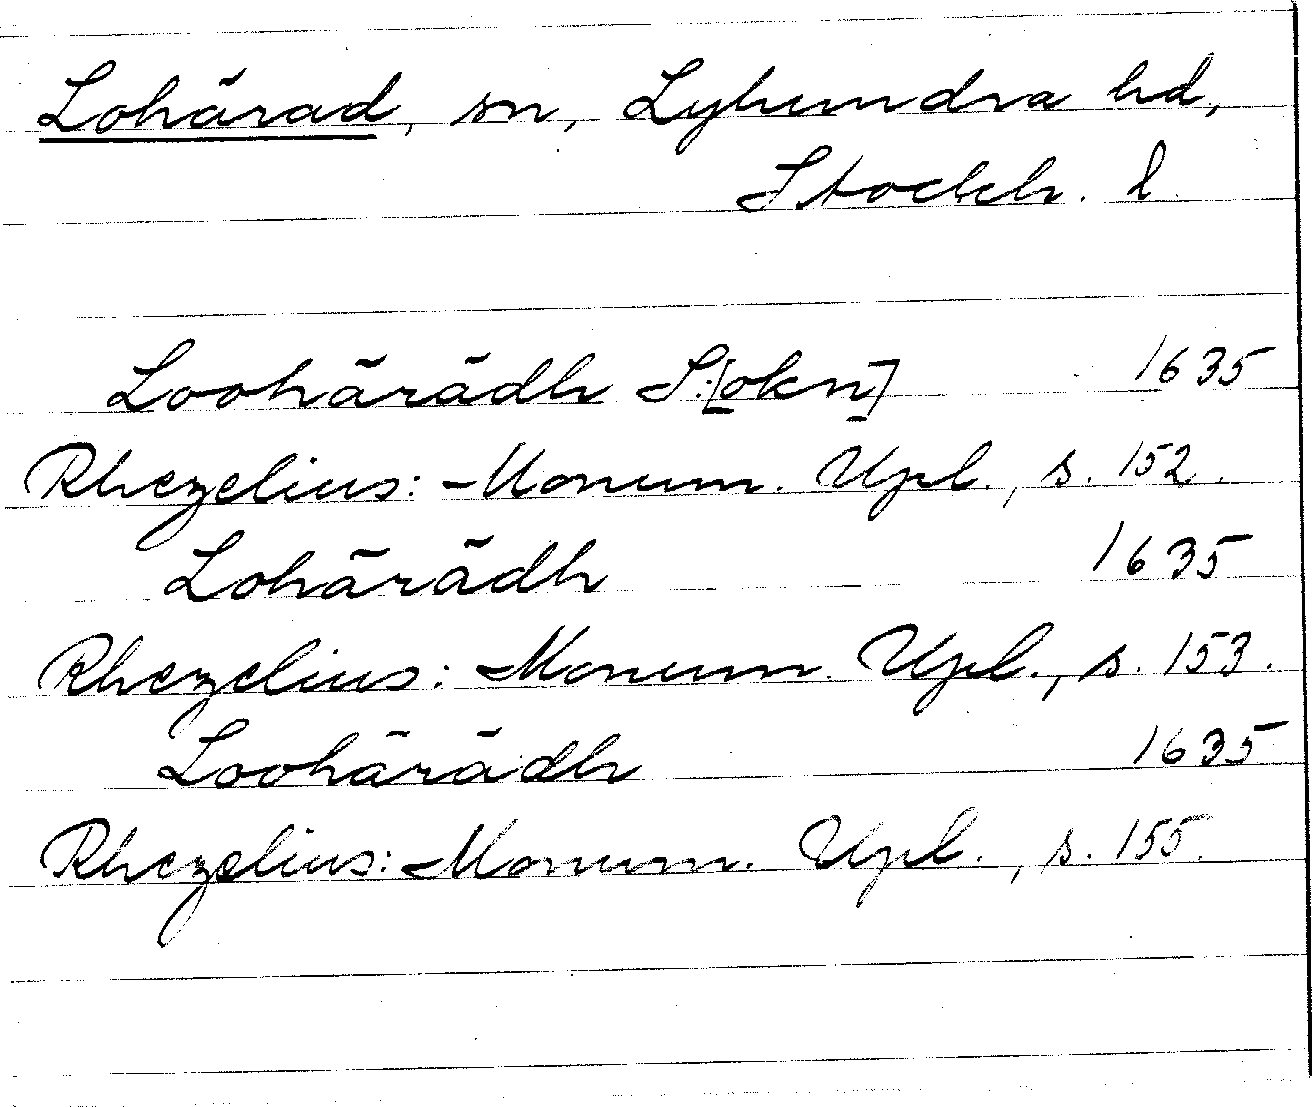 Lohärad, sn, Lyhundra hd,
Stockh. l.
Loohärädh S:[okn] 1635
Rhezelius: Monum. Upl., s. 152.
Lohärädh 1635
Rhezelius: Monum. Upl., s. 153.
Loohärädh 1635
Rhezelius: Monum. Upl., s. 155.